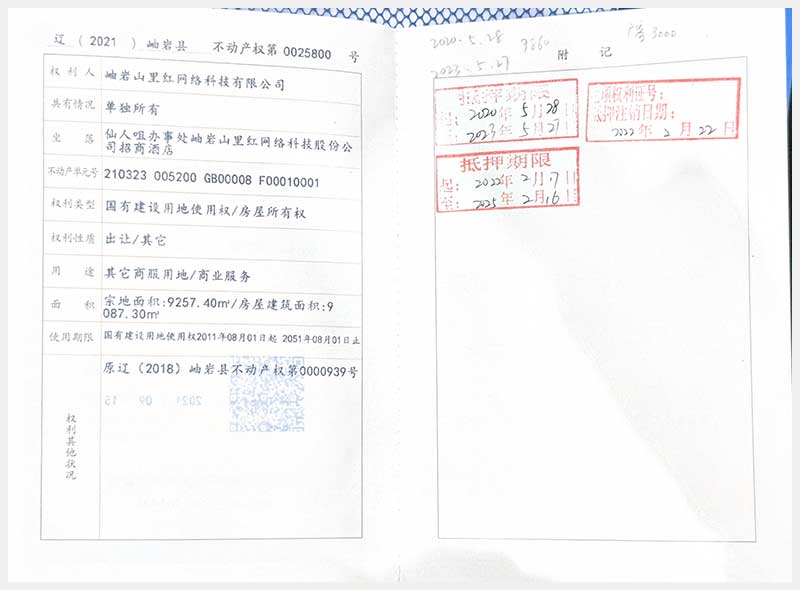 辽（2021）岫岩县 不动产权第0025800 号
权利人 岫岩山里红网络科技有限公司
共有情况 单独所有
坐落 仙人咀办事处岫岩山里红网络科技股份公
司招商酒店
不动产单元号 210323 005200 GB00008 F00010001
权利类型 国有建设用地使用权/房屋所有权
权利性质 出让/其它
用途 其它商服用地/商业服务
面积 宗地面积:9257.40㎡/房屋建筑面积:9
087.30㎡
使用期限 国有建设用地使用权2011年08月01日起 2051年08月01日止
权利其他状况
原辽（2018）岫岩县不动产权第0000939号
2021 09 15
2020-5.28
2023-5.27
3000
附记
抵押期限
起: 2020年5月28日
2023年5月27日
项权利证号:
抵押注销日期:
2022年2月22日
抵押期限
起: 2022年2月17日
至: 2025年2月16日